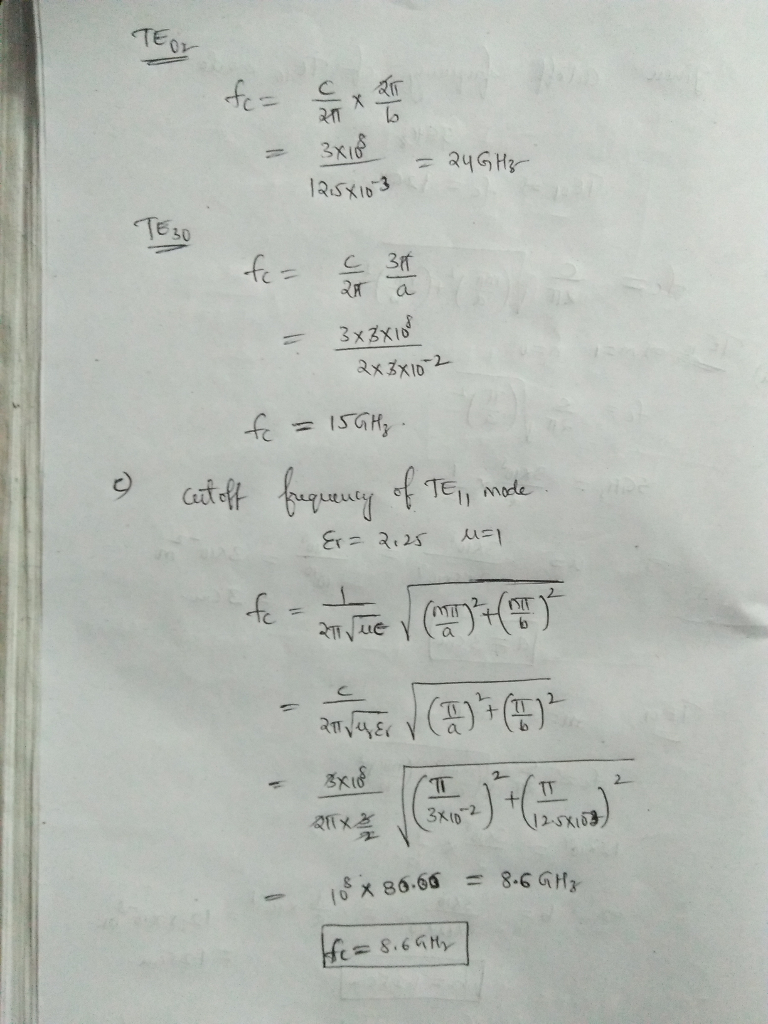 TE02
fc = c/2π × 2π/b
= 3×10^8 / 12.5×10^-3 = 24 GHz
TE30
fc = c/2π 3π/a
= 3×3×10^8 / 2×3×10^-2
fc = 15 GHz.
c) cutoff frequency of TE11 mode.
εr = 2.25 μ=1
fc = 1/2π√με √((mπ/a)^2+(nπ/b)^2)
= c/2π√μrεr √((π/a)^2+(π/b)^2)
= 3×10^8 / 2π×3/2 √((π/3×10^-2)^2+(π/12.5×10^-3)^2)
= 10^8 × 86.66 = 8.6 GHz
fc = 8.6 GHz